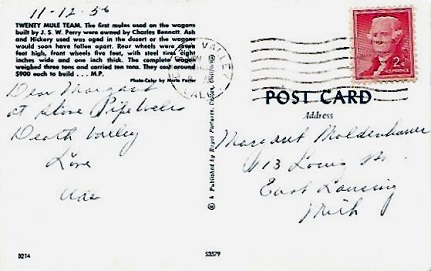 11-12-56
TWENTY MULE TEAM. The first mules used on the wagons
built by J. S. W. Perry were owned by Charles Bennett. Ash
and Hickory used was aged in the desert or the wagons
would soon have fallen apart. Rear wheels were seven
feet high, front wheels five feet, with steel tires eight
inches wide and one inch thick. The complete wagon
weighed three tons and carried ten tons. They cost around
$900 each to build . . . M.P.
Photo-Color by Merle Porter
Dear Margaret
at Stove Pipe Wells
Death Valley
Love
Ada
3214
53579
A Published by Royal Pictures, Colton,
VALLEY
CALIF
2¢
POST CARD
Address
Margaret Moldenhauer
413 Locus St.
East Lansing
Mich